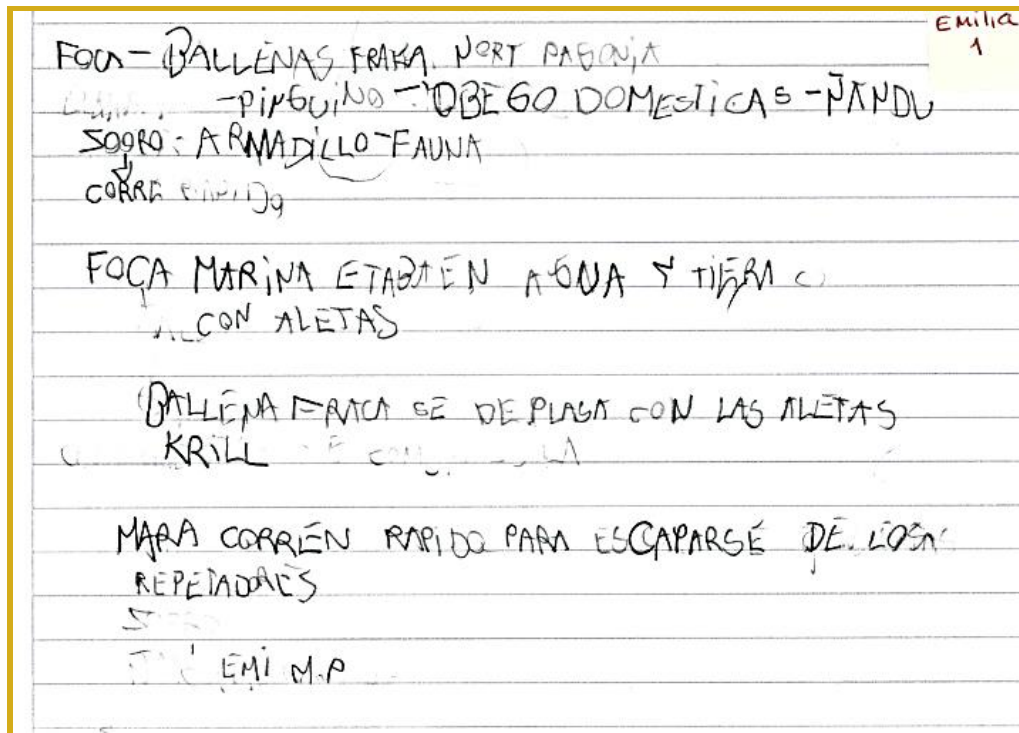 Emilia
1
FOCA - BALLENAS FRAKA. NORT PAGONIA
- PINGUINO - OBEGO DOMESTICAS - ÑANDU
SOGRO: ARMADILLO - FAUNA
CORRE
FOCA MARINA ETABA EN AGUA Y TIERA
CON ALETAS
BALLENA FRACA SE DEPLASA CON LAS ALETAS
KRILL
MARA CORREN RAPIDO PARA ESCAPARSE DE LOS
REPETADORES
EMI M.P